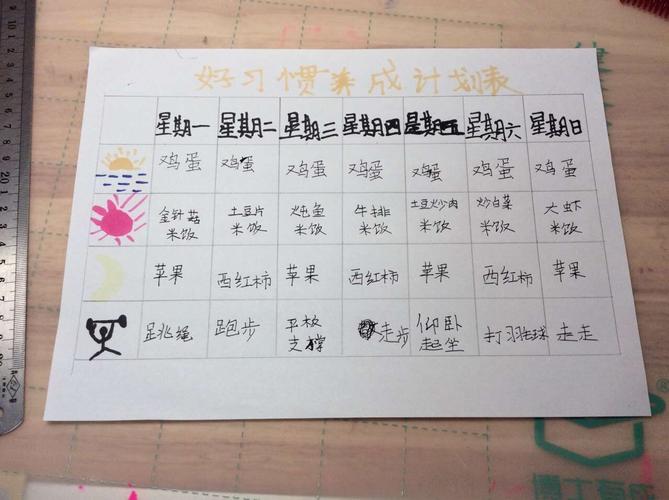 好习惯养成计划表
星期一 星期二 星期三 星期四 星期五 星期六 星期日
鸡蛋 鸡蛋 鸡蛋 鸡蛋 鸡蛋 鸡蛋 鸡蛋
金针菇 土豆片 炖鱼 牛排 土豆炒肉 炒白菜 大虾
米饭 米饭 米饭 米饭 米饭 米饭 米饭
苹果 西红柿 苹果 西红柿 苹果 西红柿 苹果
跳绳 跑步 平板 走步 仰卧 打羽毛球 走走
支撑 起坐